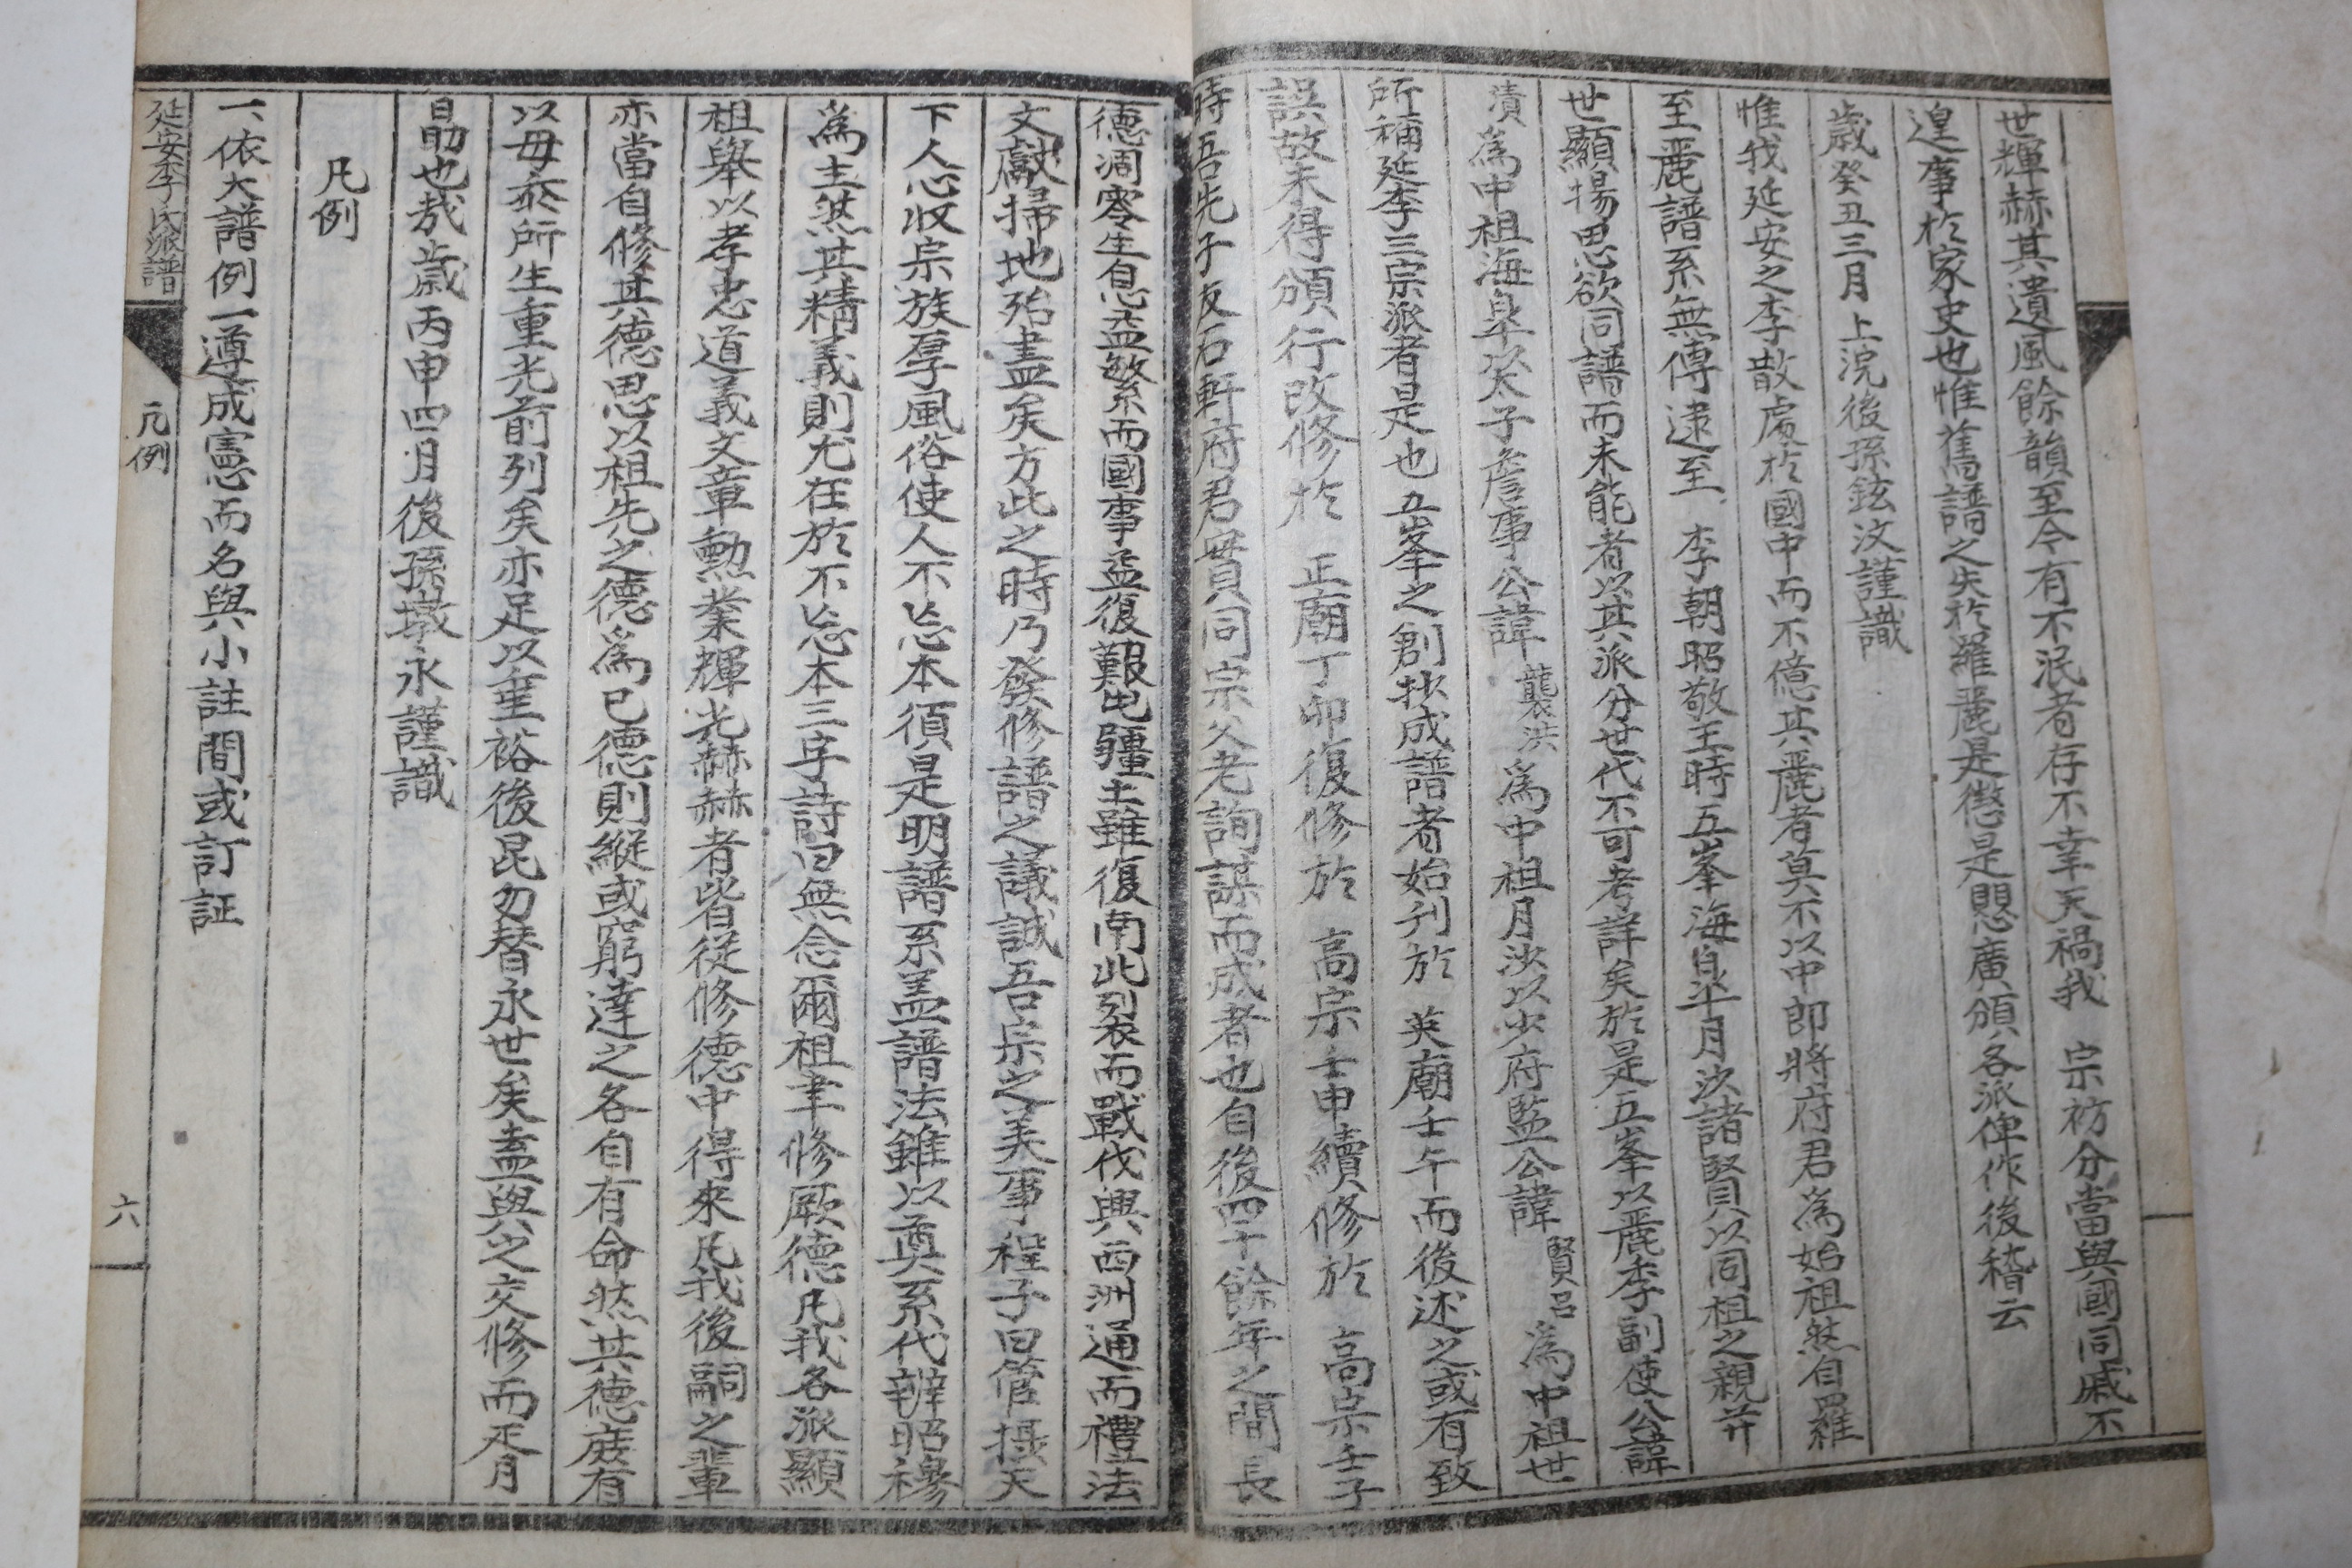 世輝赫其遺風餘韻至今有不泯者存不幸天禍我 宗祊分當與國同戚不
遑事於家史也惟舊譜之失於羅麗是懲是愳廣頒各派俾作後稽云
歲癸丑三月上浣後孫鉉汶謹識
惟我延安之李散處於國中而不億其麗者莫不以中郎將府君爲始祖然自羅
至麗譜系無傳逮至 李朝昭敬王時五峯海皐月沙諸賢以同祖之親幷
世顯揚思欲同譜而未能者以其派分世代不可考詳矣於是五峯以麗季副使公諱
漬爲中祖海皐以太子詹事公諱襲洪爲中祖月沙以少府監公諱賢呂爲中祖世
所稱延李三宗派者是也五峯之創抄成譜者始刊於 英廟壬午而後述之或有致
誤故未得頒行改修於 正廟丁卯復修於 高宗壬申續修於 高宗壬子
時吾先子友石軒府君貫同宗父老詢謀而成者也自後四十餘年之間長
德凋零生息益繁而國事益復艱屯疆土雖復南北裂而戰伐興西洲通而禮法
文獻掃地殆盡矣方此之時乃發修譜之議誠吾宗之美事程子曰管攝天
下人心收宗族厚風俗使人不忘本須是明譜系盖譜法雖以奠系代辨昭穆
爲主然其精義則尤在於不忘本三字詩曰無念爾祖聿修厥德凡我各派顯
祖擧以孝忠道義文章勳業輝光赫赫者皆從修德中得來凡我後嗣之輩
亦當自修其德思以祖先之德爲己德則縱或窮達之各自有命然其德庭有
以毋忝所生重光前列矣亦足以垂裕後昆勿替永世矣盍與之交修而疋月
自勖也哉歲丙申四月後孫墩永謹識
凡例
一、依大譜例一遵成憲而名與小註間或訂証
延安李氏派譜
凡例
六